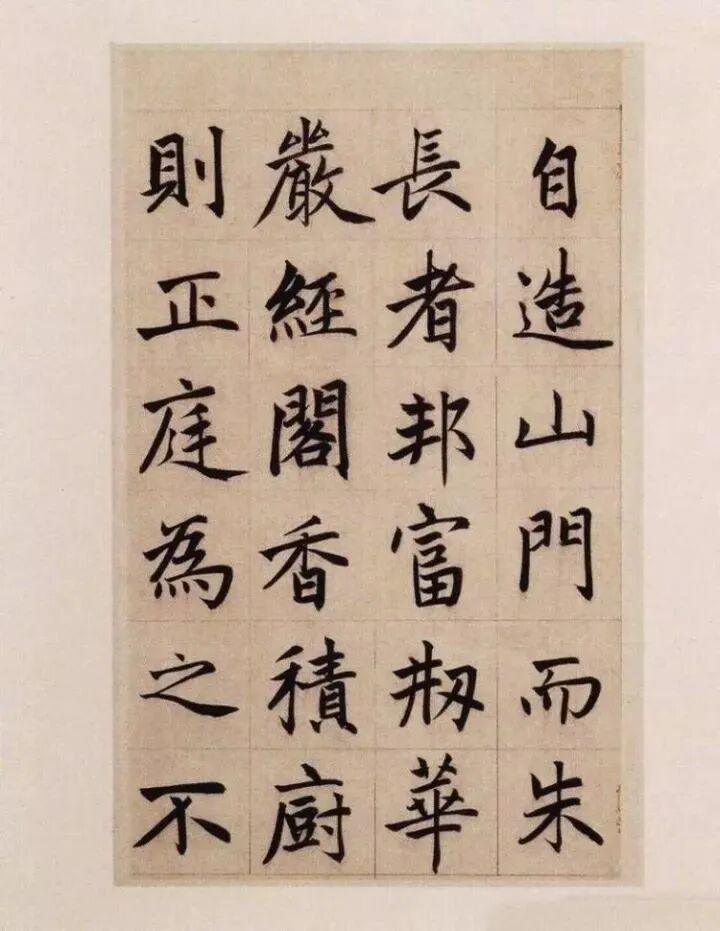 自造山門而朱
長者邦富剏華
嚴經閣香積厨
則正庭為之不